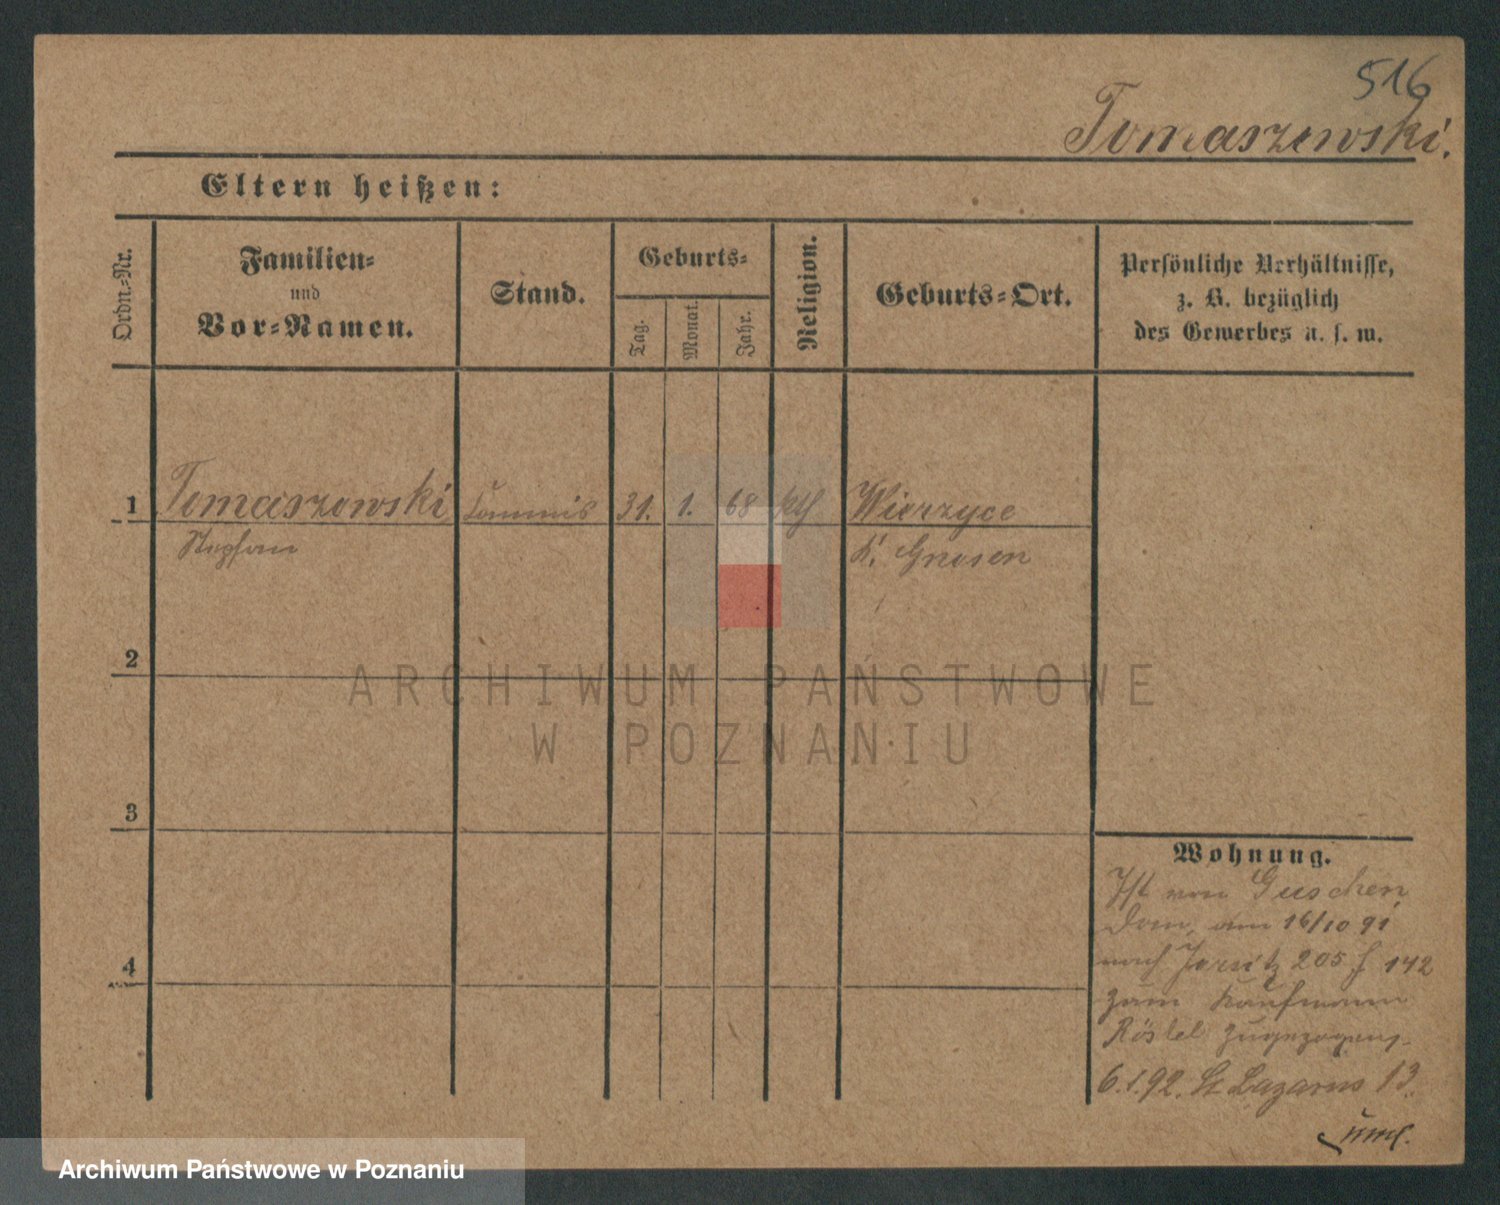 516
Tomaszewski.
Eltern heißen:
Ordn.-Nr.
Familien-
und
Vor-Namen.
Stand.
Geburts-
Tag.
Monat.
Jahr.
Religion.
Geburts-Ort.
Persönliche Verhältnisse,
z. B. bezüglich
des Gewerbes u. s. w.
1 Tomaszewski Commis 31. 1. 68 kth Wierzyce
Stephan K. Gnesen
2
3
4
Wohnung.
Ist von Guschen
Dom. am 16/10 91
nach Jersitz 205 f 142
zum Kaufmann
Röstel zugezogen.
6.1.92. St Lazarus 13.
ARCHIWUM PAŃSTWOWE
W POZNANIU
Archiwum Państwowe w Poznaniu